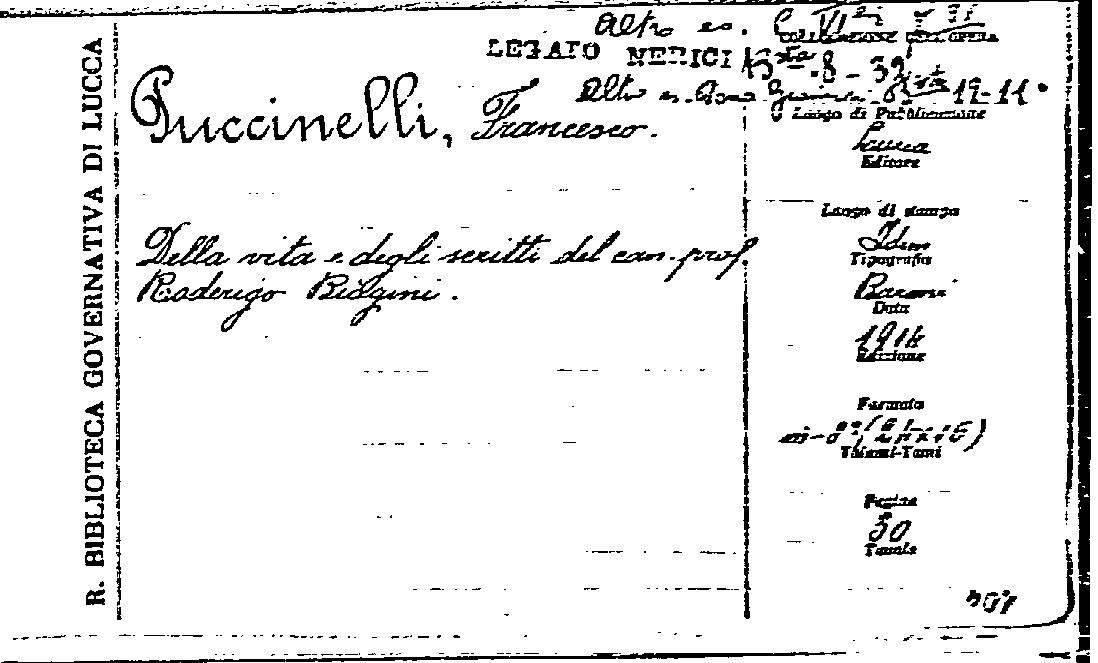 R. BIBLIOTECA GOVERNATIVA DI LUCCA
Altro es.
COLLOCAZIONE DELL'OPERA
LEGATO NERICI
Altro es. 12-11
Puccinelli, Francesco.
Della vita e degli scritti del can. prof.
Raderigo Biagini.
Luogo di Pubblicazione
Lucca
Editore
Luogo di stampa
Idem
Tipografia
Baroni
Data
1914
Edizione
Formato
in-8°
Volumi-Tomi
Pagine
30
Tavole